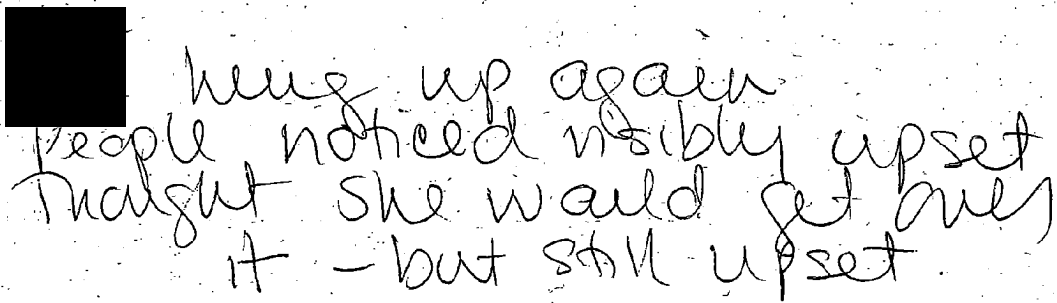 hung up again
People noticed visibly upset
Thought she would get over
it - but still upset.